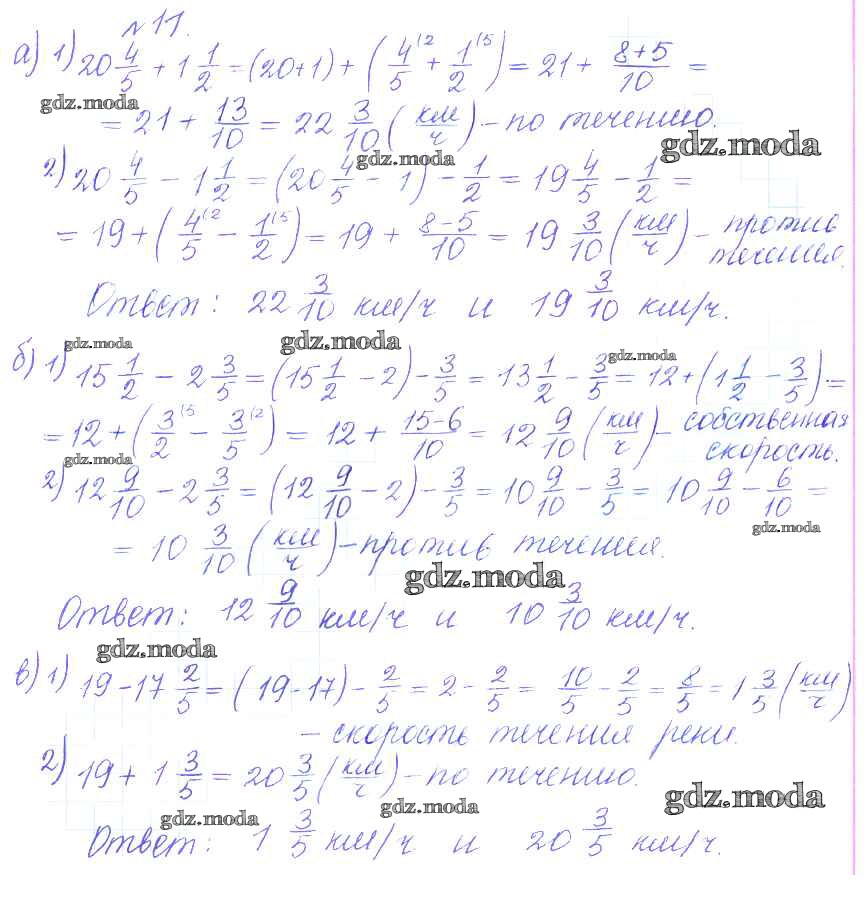 № 11.
а) 1) 20 4/5 + 1 1/2 = (20+1) + (4/5 (2 + 1/2 (5) = 21 + 8+5/10 =
gdz.moda
= 21 + 13/10 = 22 3/10 (км/ч) - по течению.
gdz.moda
gdz.moda
2) 20 4/5 - 1 1/2 = (20 4/5 - 1) - 1/2 = 19 4/5 - 1/2 =
= 19 + (4/5 (2 - 1/2 (5) = 19 + 8-5/10 = 19 3/10 (км/ч) - против
течения.
Ответ: 22 3/10 км/ч и 19 3/10 км/ч.
gdz.moda gdz.moda gdz.moda
б) 1) 15 1/2 - 2 3/5 = (15 1/2 - 2) - 3/5 = 13 1/2 - 3/5 = 12 + (1 1/2 - 3/5) =
= 12 + (3/2 (5 - 3/5 (2) = 12 + 15-6/10 = 12 9/10 (км/ч) - собственная
скорость.
gdz.moda
2) 12 9/10 - 2 3/5 = (12 9/10 - 2) - 3/5 = 10 9/10 - 3/5 = 10 9/10 - 6/10 =
gdz.moda
= 10 3/10 (км/ч) - против течения.
gdz.moda
Ответ: 12 9/10 км/ч и 10 3/10 км/ч.
gdz.moda
в) 1) 19 - 17 2/5 = (19 - 17) - 2/5 = 2 - 2/5 = 10/5 - 2/5 = 8/5 = 1 3/5 (км/ч)
- скорость течения реки.
2) 19 + 1 3/5 = 20 3/5 (км/ч) - по течению.
gdz.moda gdz.moda gdz.moda
Ответ: 1 3/5 км/ч и 20 3/5 км/ч.